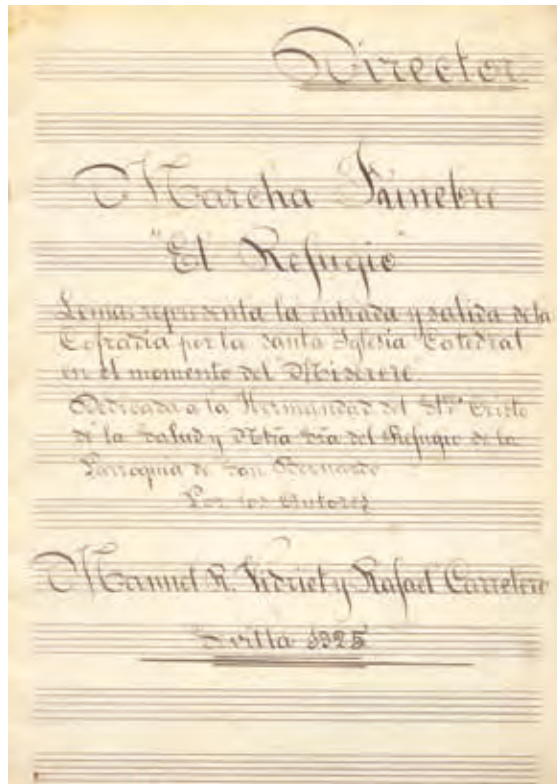 Director
Marcha Fúnebre
"El Refugio"
Lema: representa la entrada y salida de la
Cofradía por la Santa Iglesia Catedral
en el momento del "Miserere".
Dedicada a la Hermandad del Stmo Cristo
de la Salud y Ntra Sra del Refugio de la
Parroquia de San Bernardo
Por los Autores
Manuel R. y Rafael Carretero
Sevilla 1925